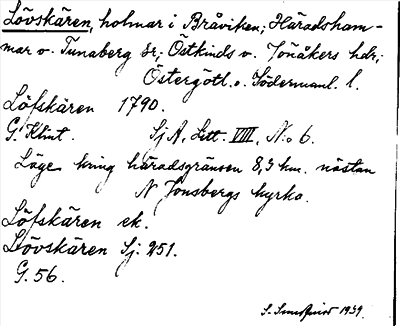 Lövskären, holmar i Bråviken; Häradsham-
mar o. Tunaberg sr; Östkinds o. Jönåkers hdr;
Östergötl. o. Södermanl. l.
Löfskären 1790.
G. Klint. Sj A, Litt. VIII, No 6.
Läge kring häradsgränsen 8,3 km. nästan
N Jonsbergs kyrka.
Löfskären ek.
Lövskären Sj. 251.
G. 56.
S. 1939.